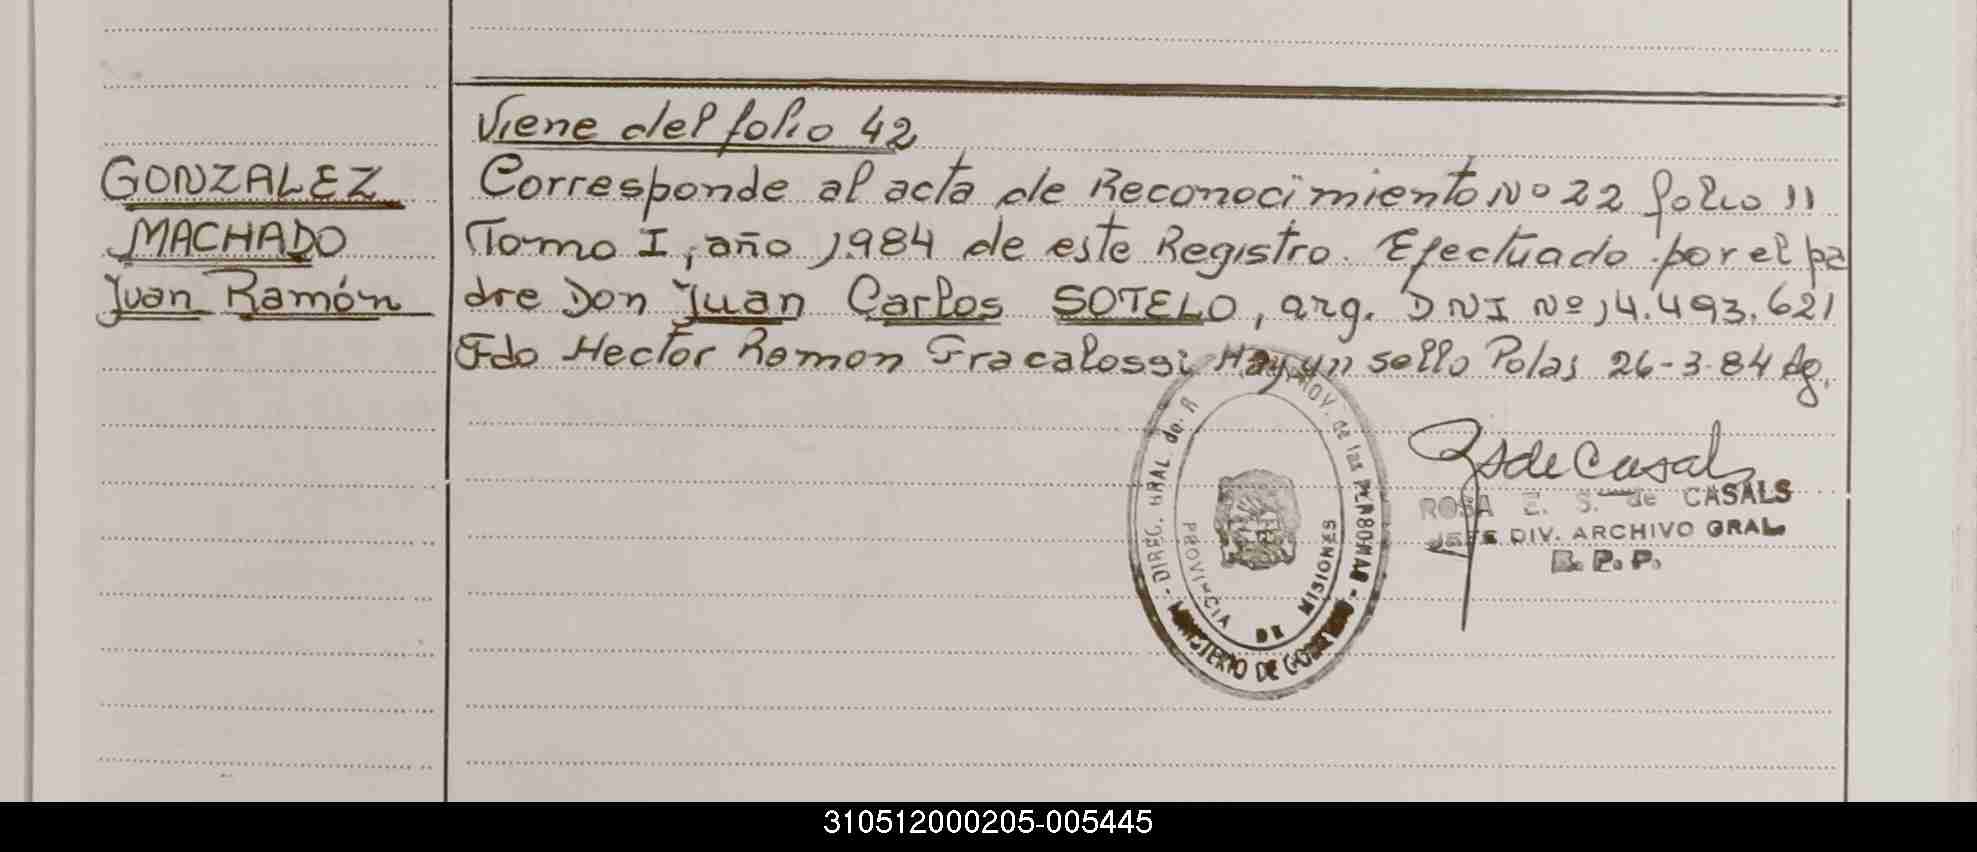 Viene del folio 42
GONZALEZ
MACHADO
Juan Ramón
Corresponde al acta de Reconocimiento Nº 22 folio 11
Tomo I, año 1.984 de este Registro. Efectuado por el pa
dre Don Juan Carlos SOTELO, arg. DNI Nº 14.493.621
Fdo Hector Ramon Fracalossi Hay un sello Polas 26-3-84 Ag.
DIREC. GRAL de R PROV. de las PERSONAS
PROVINCIA DE MISIONES
MINISTERIO DE GOBIERNO
RS de Casals
ROSA E. S. de CASALS
JEFE DIV. ARCHIVO GRAL
R. P. P.
310512000205-005445